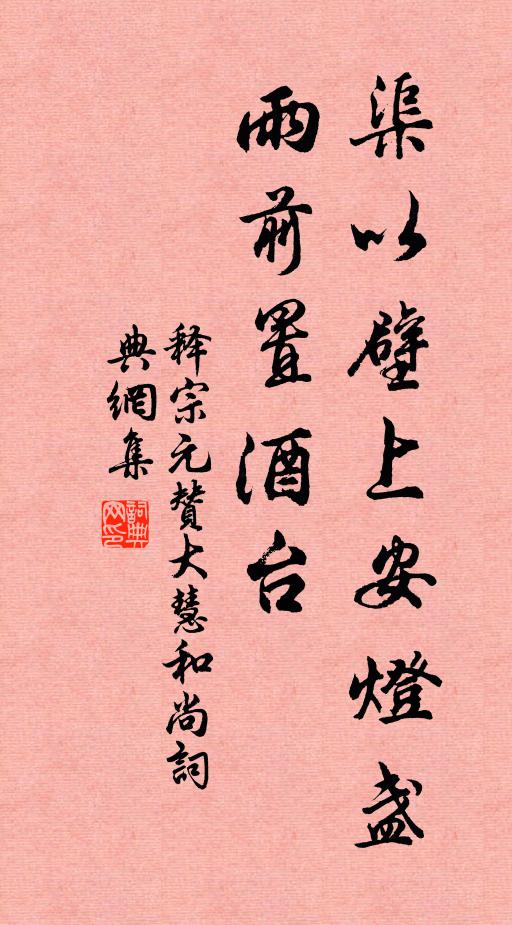 渠以壁上安燈盞
雨前置酒台
释宗元贊大慧和尚詞
典網集
詞典
网印